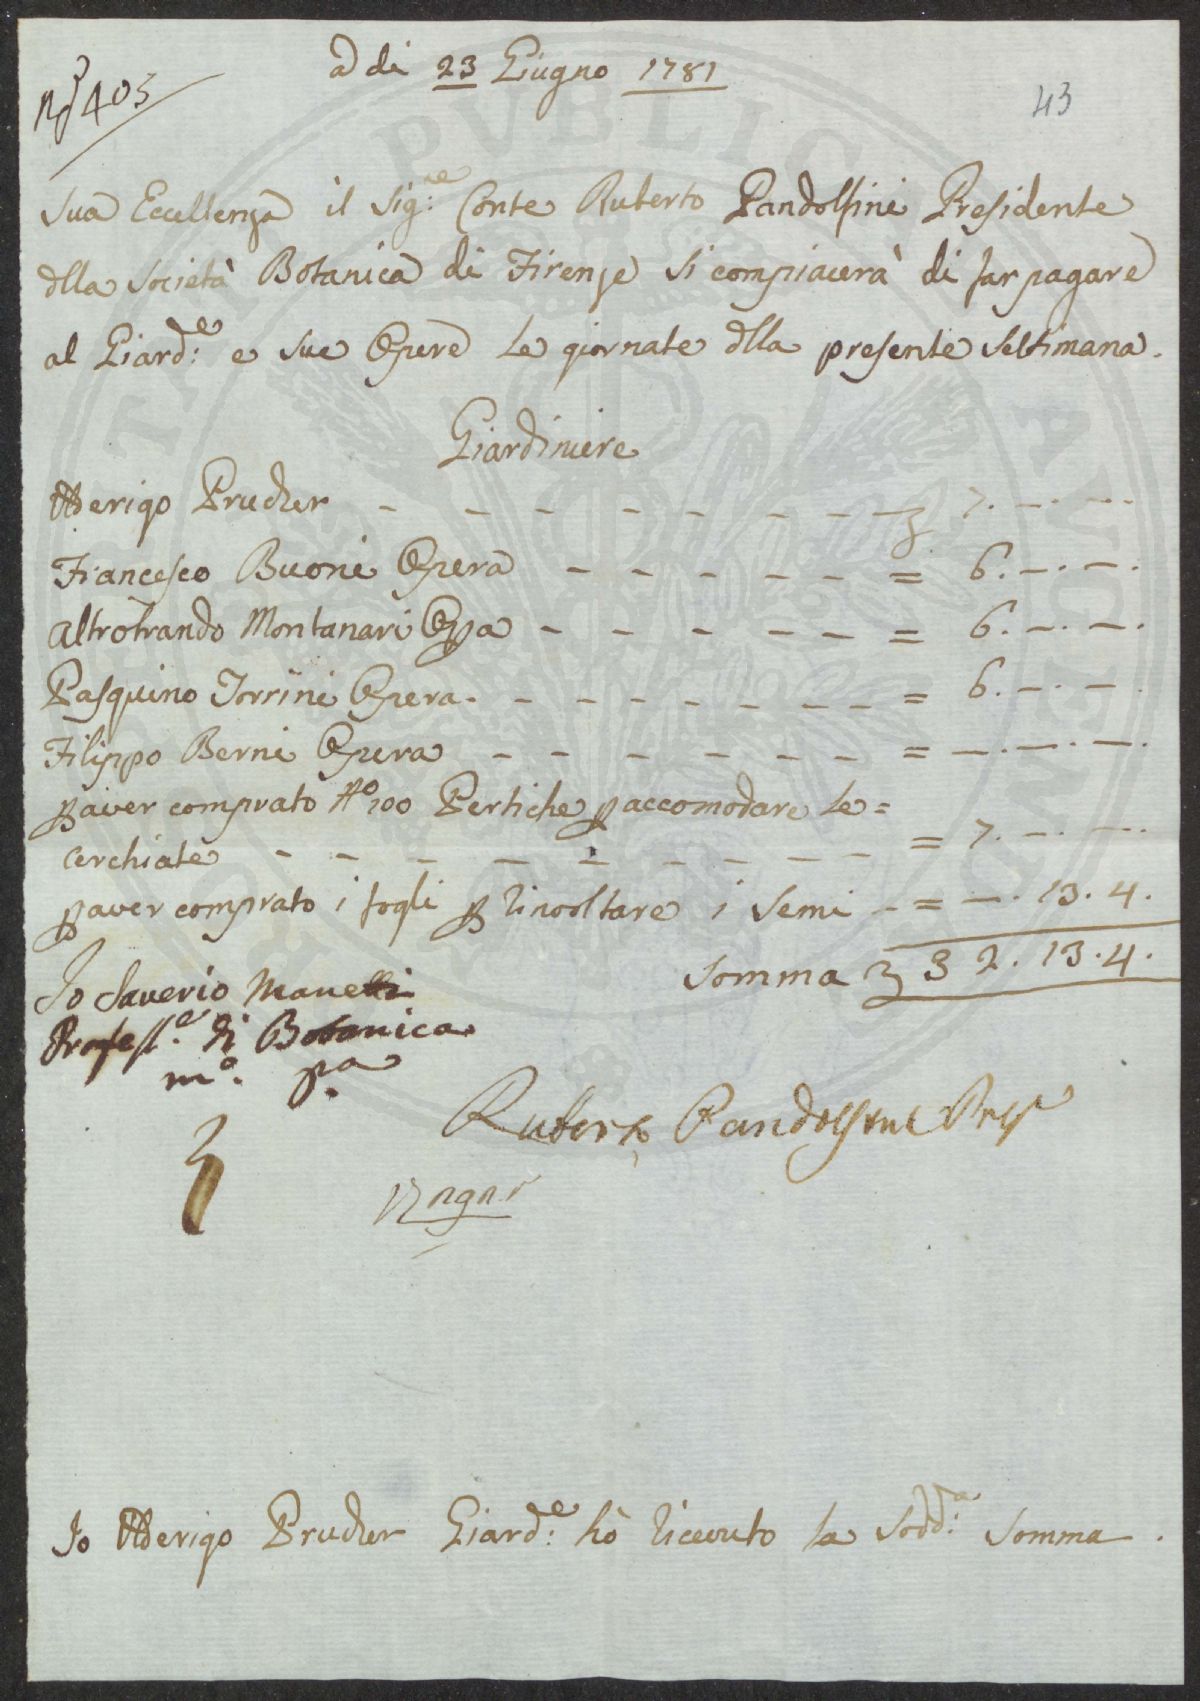 a di 23 Giugno 1781
N.º 403
43
Sua Eccellenza il Sig:re Conte Ruberto Pandolfini Presidente
dlla Società Botanica di Firenze si compiacerà di far pagare
al Giard:e e sue Opere le giornate dlla presente Settimana.
Giardiniere
Underigo Prucker - - - - - - - - - £ 7. —. —.
Francesco Buoni Opera - - - - - = 6. —. —.
Altrobrando Montanari Oppa - - - - - - = 6. —. —.
Pasquino Torrini Opera. - - - - - - - = 6. —. —.
Filippo Berni Opera - - - - - - - = —. —. —.
p aver comprato Nº 100 Pertiche p accomodare le =
cerchiate - - - - - - - - - - = 7. —. —.
p aver comprato i fogli p rinvoltare i Semi - = —. 13. 4.
Somma £ 32. 13. 4.
Io Saverio Manetti
Profess.e di Botanica
m.º p.a
Ruberto Pandolfini Pres
Io Underigo Prucker Giard:e hò ricevuto la Sodd:a Somma.